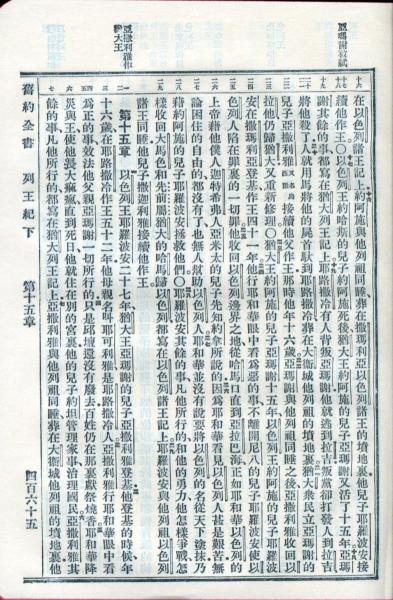 亞瑪謝被弒
亞撒利雅作
猶大王
在以色列諸王記上約阿施與他列祖同睡葬在撒瑪利亞以色列諸王的墳地裏他兒子耶羅波安接
續他作王○以色列王約哈斯的兒子約阿施死後猶大王約阿施的兒子亞瑪謝又活了十五年亞瑪
謝其餘的事都寫在猶大列王記上耶路撒冷有人背叛亞瑪謝他就逃到拉吉叛黨卻打發人到拉吉
將他殺了人就用馬將他的屍首馱到耶路撒冷葬在大衛城他列祖的墳地裏猶大衆民立亞瑪謝的
兒子亞撒利雅又名烏西雅接續他父作王那時他年十六歲亞瑪謝與他列祖同睡之後亞撒利雅收回以
拉他仍歸猶大又重新修理○猶大王約阿施的兒子亞瑪謝十五年以色列王約阿施的兒子耶羅波
安在撒瑪利亞登基作王四十一年他行耶和華眼中看爲惡的事不離開尼八的兒子耶羅波安使以
色列人陷在罪裏的一切罪他收回以色列邊界之地從哈馬口直到亞拉巴海正如耶和華以色列的
上帝藉他僕人迦特希弗人亞米太的兒子先知約拿所說的因爲耶和華看見以色列人甚是艱苦無
論困住的自由的都沒有了也無人幫助以色列人耶和華並沒有說要將以色列的名從天下塗抹乃
藉約阿施的兒子耶羅波安拯救他們○耶羅波安其餘的事凡他所行的和他的勇力他怎樣爭戰怎
樣收回大馬色和先前屬猶大的哈馬歸以色列都寫在以色列諸王記上耶羅波安與他列祖以色列
諸王同睡他兒子撒迦利雅接續他作王
第十五章 以色列王耶羅波安二十七年猶大王亞瑪謝的兒子亞撒利雅登基他登基的時候年
十六歲在耶路撒冷作王五十二年他母親名叫耶可利雅是耶路撒冷人亞撒利雅行耶和華眼中看
爲正的事效法他父親亞瑪謝一切所行的只是邱壇還沒有廢去百姓仍在那裏獻祭燒香耶和華降
災與王使他長大痲瘋直到死日他就住在別的宮裏他的兒子約坦管理家事治理國民亞撒利雅其
餘的事凡他所行的都寫在猶大列王記上亞撒利雅與他列祖同睡葬在大衛城他列祖的墳地裏他
舊約全書 列王紀下 第十五章 四百六十五